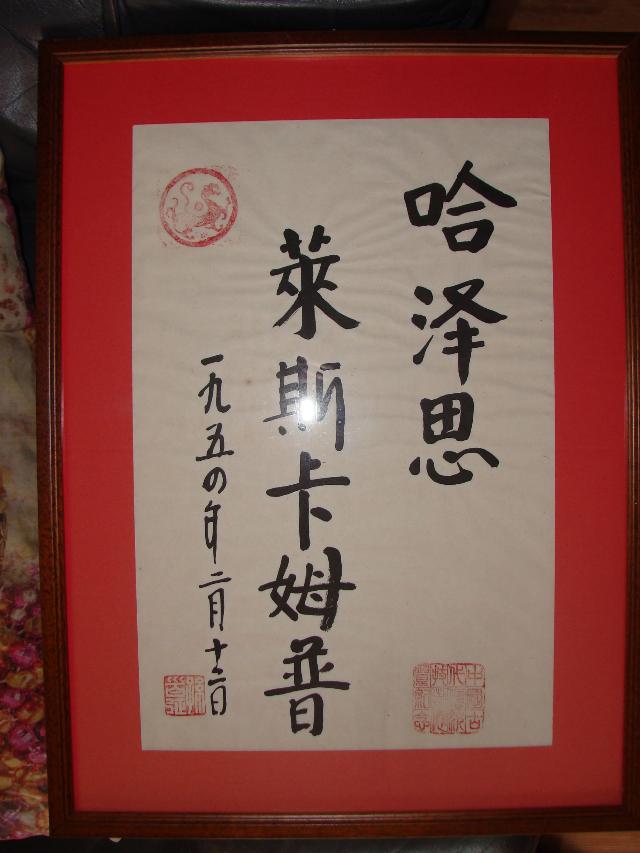 哈泽思
萊斯卡姆普
一九五四年二月十二日